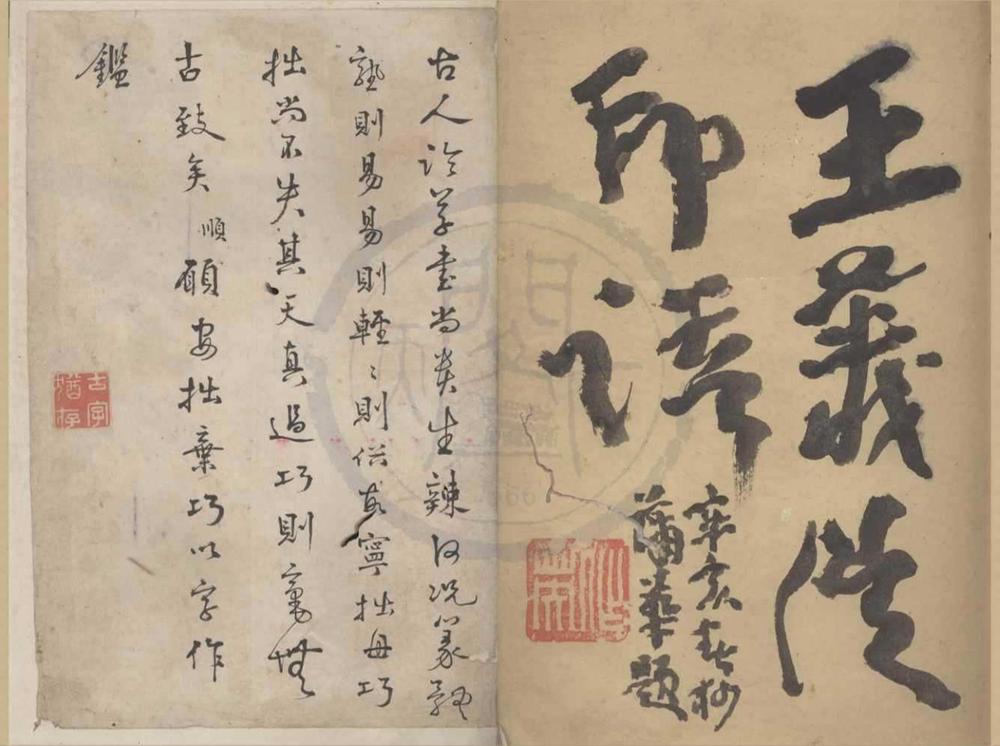 王義從
印譜
辛亥春杪
蒲華題
古人論草書尚貴生辣何況篆
熟則易易則輕〻則俗故寧拙毋巧
拙尚不失其天真過巧則竟無
古致矣順願安拙棄巧以字作
鑑